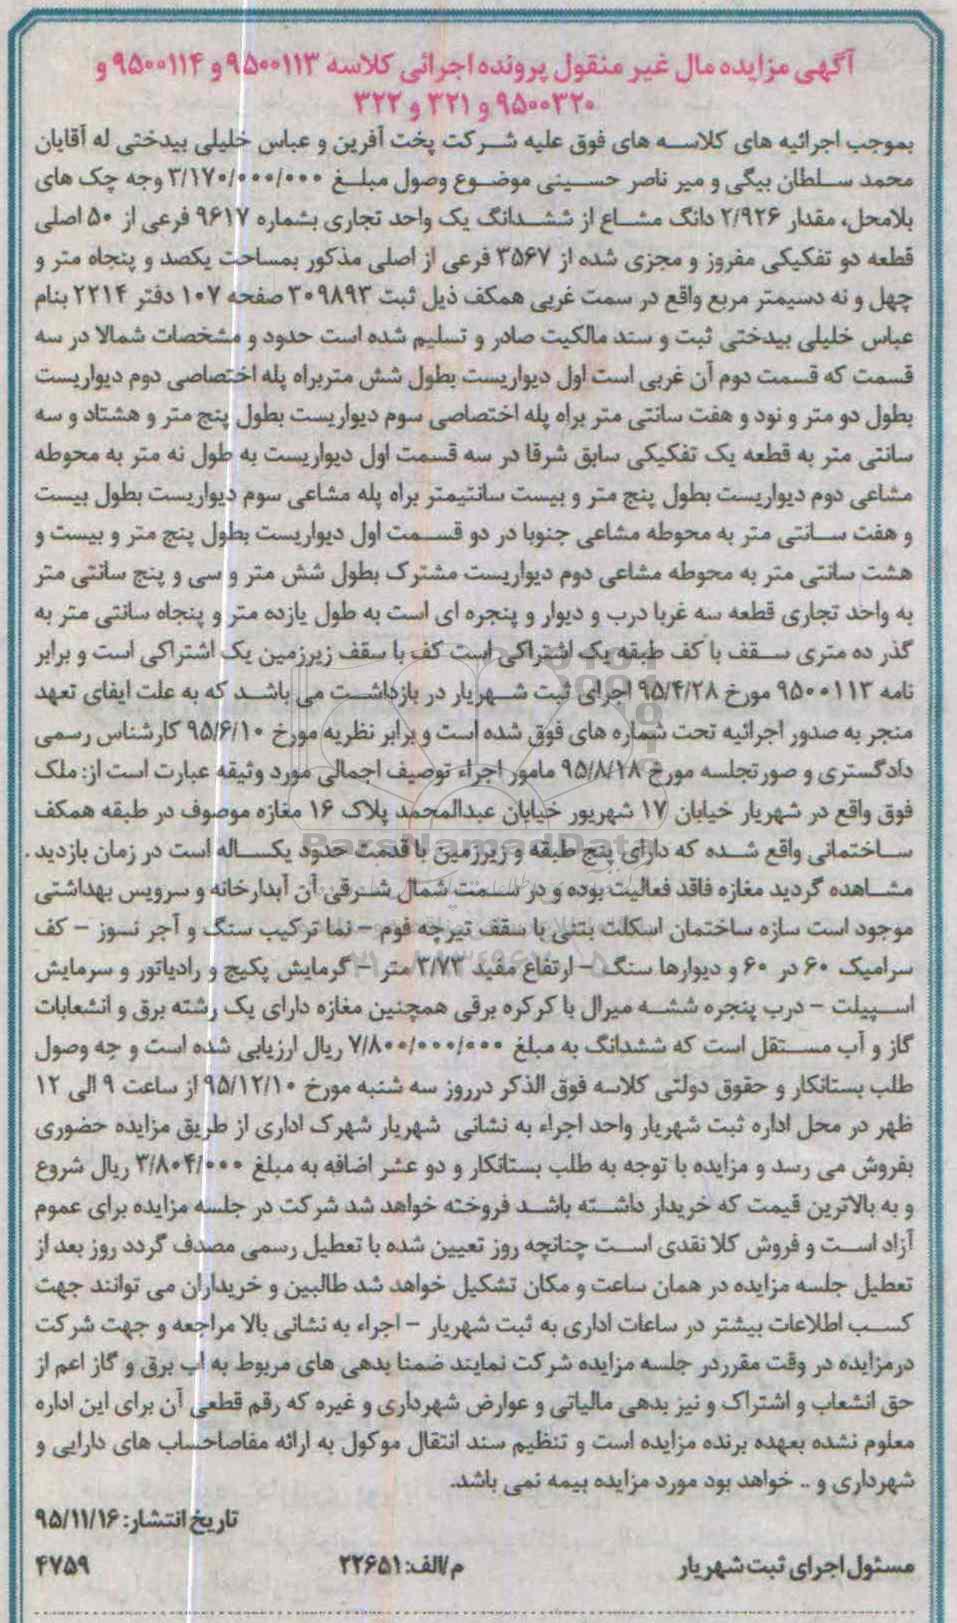 آگهی مزایده مال غیر منقول پرونده اجرائی کلاسه ۹۵۰۰۱۱۳ و ۹۵۰۰۱۱۴ و
۹۵۰۰۳۲۰ و ۳۲۱ و ۳۲۲
بموجب اجرائیه های کلاسه های فوق علیه شرکت پخت آفرین و عباس خلیلی بیدختی له آقایان
محمد سلطان بیگی و میر ناصر حسینی موضوع وصول مبلغ ۳/۱۷۰/۰۰۰/۰۰۰ وجه چک های
بلامحل، مقدار ۲/۹۲۶ دانگ مشاع از ششدانگ یک واحد تجاری بشماره ۹۶۱۷ فرعی از ۵۰ اصلی
قطعه دو تفکیکی مفروز و مجزی شده از ۳۵۶۷ فرعی از اصلی مذکور بمساحت یکصد و پنجاه متر و
چهل و نه دسیمتر مربع واقع در سمت غربی همکف ذیل ثبت ۳۰۹۸۹۳ صفحه ۱۰۷ دفتر ۲۲۱۴ بنام
عباس خلیلی بیدختی ثبت و سند مالکیت صادر و تسلیم شده است حدود و مشخصات شمالا در سه
قسمت که قسمت دوم آن غربی است اول دیواریست بطول شش متربراه پله اختصاصی دوم دیواریست
بطول دو متر و نود و هفت سانتی متر براه پله اختصاصی سوم دیواریست بطول پنج متر و هشتاد و سه
سانتی متر به قطعه یک تفکیکی سابق شرقا در سه قسمت اول دیواریست به طول نه متر به محوطه
مشاعی دوم دیواریست بطول پنج متر و بیست سانتیمتر براه پله مشاعی سوم دیواریست بطول بیست
و هفت سانتی متر به محوطه مشاعی جنوبا در دو قسمت اول دیواریست بطول پنج متر و بیست و
هشت سانتی متر به محوطه مشاعی دوم دیواریست مشترک بطول شش متر و سی و پنج سانتی متر
به واحد تجاری قطعه سه غربا درب و دیوار و پنجره ای است به طول یازده متر و پنجاه سانتی متر به
گذر ده متری سقف با کف طبقه یک اشتراکی است کف با سقف زیرزمین یک اشتراکی است و برابر
نامه ۹۵۰۰۱۱۳ مورخ ۹۵/۴/۲۸ اجرای ثبت شهریار در بازداشت می باشد که به علت ایفای تعهد
منجر به صدور اجرائیه تحت شماره های فوق شده است و برابر نظریه مورخ ۹۵/۶/۱۰ کارشناس رسمی
دادگستری و صورتجلسه مورخ ۹۵/۸/۱۸ مامور اجراء توصیف اجمالی مورد وثیقه عبارت است از: ملک
فوق واقع در شهریار خیابان ۱۷ شهریور خیابان عبدالمحمد پلاک ۱۶ مغازه موصوف در طبقه همکف
ساختمانی واقع شده که دارای پنج طبقه و زیرزمین با قدمت حدود یکساله است در زمان بازدید .
مشاهده گردید مغازه فاقد فعالیت بوده و در سمت شمال شرقی آن آبدارخانه و سرویس بهداشتی
موجود است سازه ساختمان اسکلت بتنی با سقف تیرچه فوم – نما ترکیب سنگ و آجر نسوز – کف
سرامیک ۶۰ در ۶۰ و دیوارها سنگ – ارتفاع مفید ۳/۷۳ متر – گرمایش پکیج و رادیاتور و سرمایش
اسپیلت – درب پنجره ششه میرال با کرکره برقی همچنین مغازه دارای یک رشته برق و انشعابات
گاز و آب مستقل است که ششدانگ به مبلغ ۷/۸۰۰/۰۰۰/۰۰۰ ریال ارزیابی شده است و جه وصول
طلب بستانکار و حقوق دولتی کلاسه فوق الذکر درروز سه شنبه مورخ ۹۵/۱۲/۱۰ از ساعت ۹ الی ۱۲
ظهر در محل اداره ثبت شهریار واحد اجراء به نشانی شهریار شهرک اداری از طریق مزایده حضوری
بفروش می رسد و مزایده با توجه به طلب بستانکار و دو عشر اضافه به مبلغ ۳/۸۰۴/۰۰۰ ریال شروع
و به بالاترین قیمت که خریدار داشته باشد فروخته خواهد شد شرکت در جلسه مزایده برای عموم
آزاد است و فروش کلا نقدی است چنانچه روز تعیین شده با تعطیل رسمی مصدف گردد روز بعد از
تعطیل جلسه مزایده در همان ساعت و مکان تشکیل خواهد شد طالبین و خریداران می توانند جهت
کسب اطلاعات بیشتر در ساعات اداری به ثبت شهریار – اجراء به نشانی بالا مراجعه و جهت شرکت
درمزایده در وقت مقرردر جلسه مزایده شرکت نمایند ضمنا بدهی های مربوط به اب برق و گاز اعم از
حق انشعاب و اشتراک و نیز بدهی مالیاتی و عوارض شهرداری و غیره که رقم قطعی آن برای این اداره
معلوم نشده بعهده برنده مزایده است و تنظیم سند انتقال موکول به ارائه مفاصاحساب های دارایی و
شهرداری و .. خواهد بود مورد مزایده بیمه نمی باشد.
تاریخ انتشار: ۹۵/۱۱/۱۶
مسئول اجرای ثبت شهریار م/الف: ۲۲۶۵۱ ۴۷۵۹
ParsNamadData